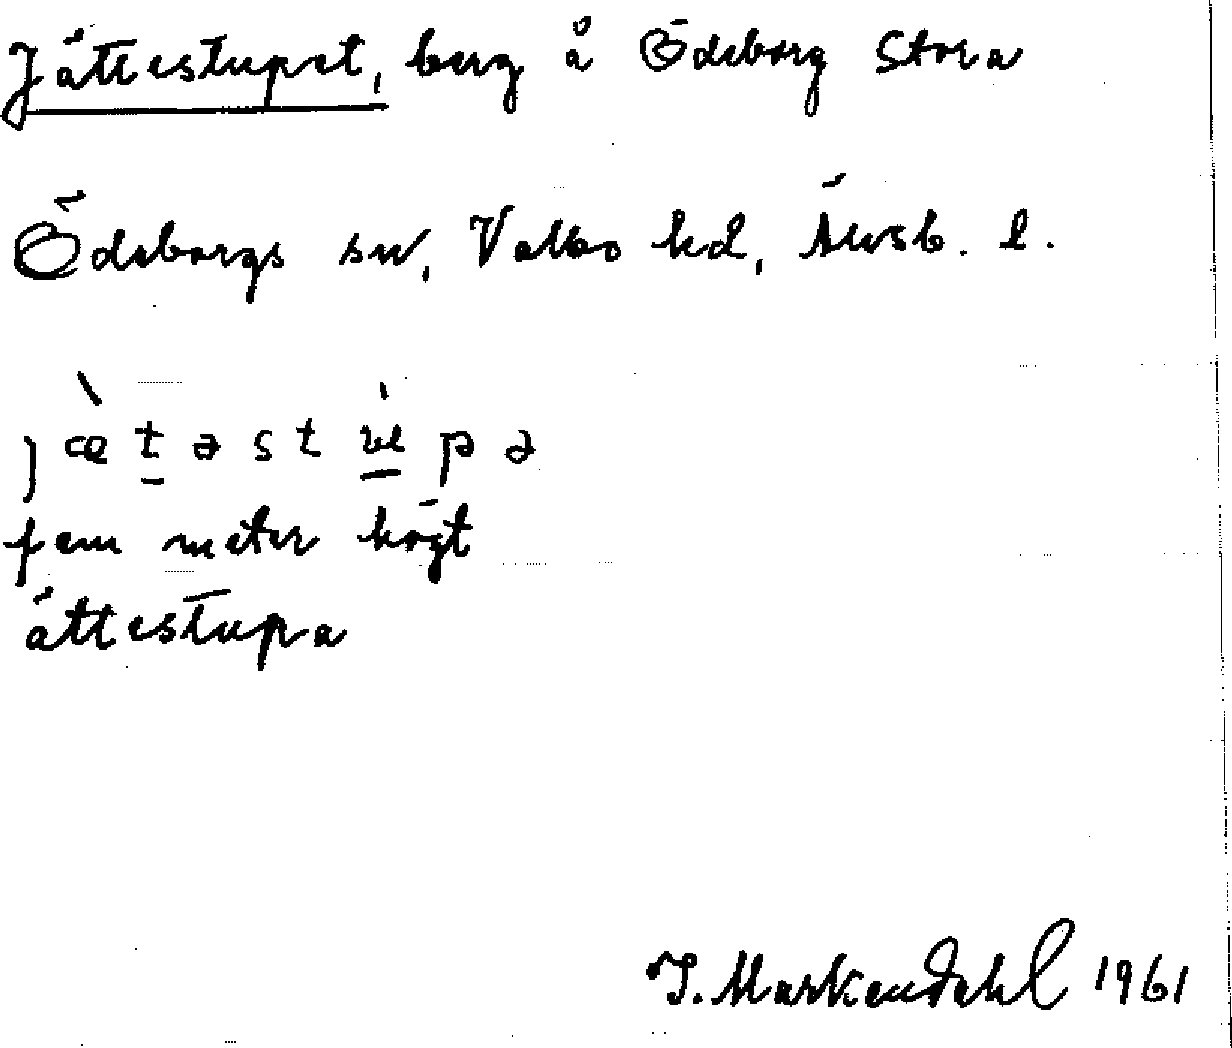 Jättestupet, berg å Ödeborg Stora
Ödeborgs sn, Valbo hd, Älvsb. l.
fem meter högt
ättestupa
I. Markendahl 1961